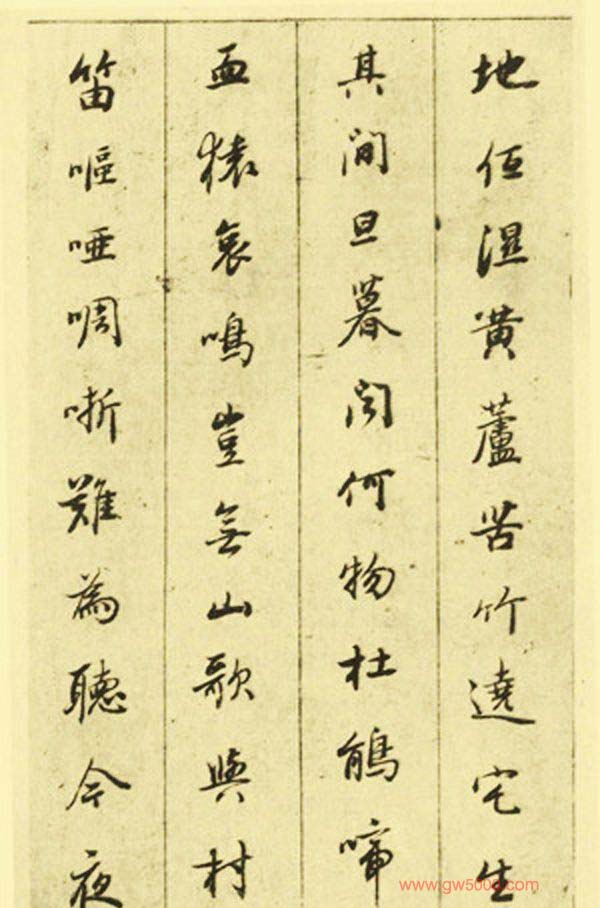 地低濕黃蘆苦竹遶宅生
其間旦暮聞何物杜鵑啼
血猿哀鳴豈無山歌與村
笛嘔啞啁哳難為聽今夜
www.gw500.com